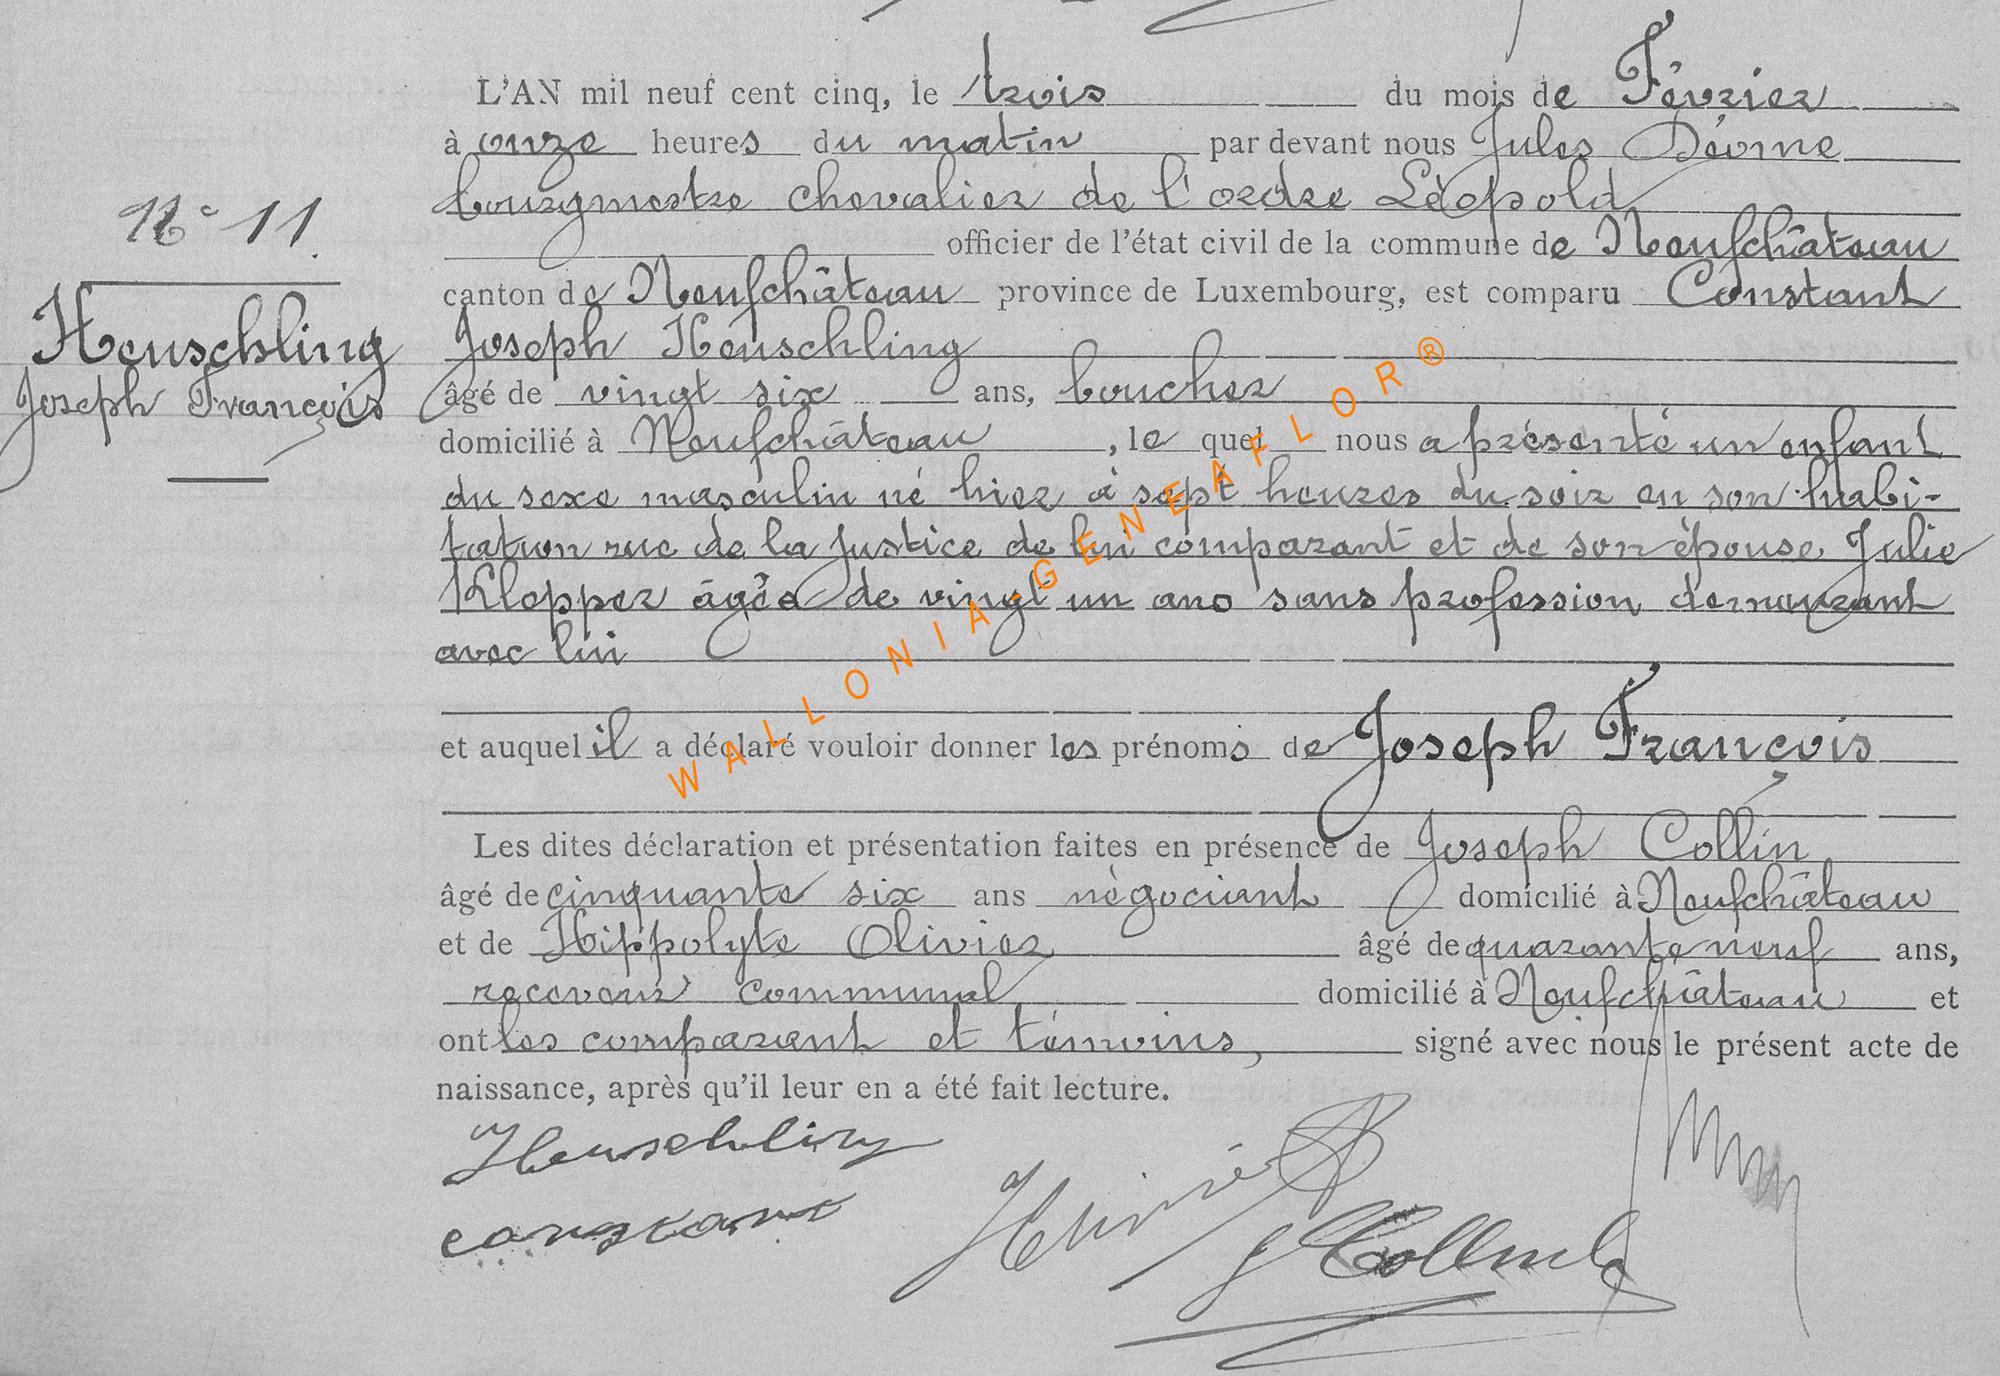 L'AN mil neuf cent cinq, le trois du mois de Février
à onze heures du matin par devant nous Jules
bourgmestre chevalier de l'ordre Léopold
officier de l'état civil de la commune de Neufchâteau
N° 11
canton de Neufchâteau province de Luxembourg, est comparu Constant
Heuschling
Joseph Heuschling
Joseph François
âgé de vingt six ans, boucher
domicilié à Neufchâteau, le quel nous a présenté un enfant
du sexe masculin né hier à sept heures du soir en son habi-
tation rue de la Justice de lui comparant et de son épouse Julie
Klopper âgée de vingt un ans sans profession demeurant
avec lui
et auquel il a déclaré vouloir donner les prénoms de Joseph François
Les dites déclaration et présentation faites en présence de Joseph Collin
âgé de cinquante six ans négociant domicilié à Neufchâteau
et de Hippolyte Olivier âgé de quarante neuf ans,
receveur communal domicilié à Neufchâteau et
ont les comparant et témoins, signé avec nous le présent acte de
naissance, après qu'il leur en a été fait lecture.
Heuschling
constant
J Collin
WALLONIA-GENEAFLOR®